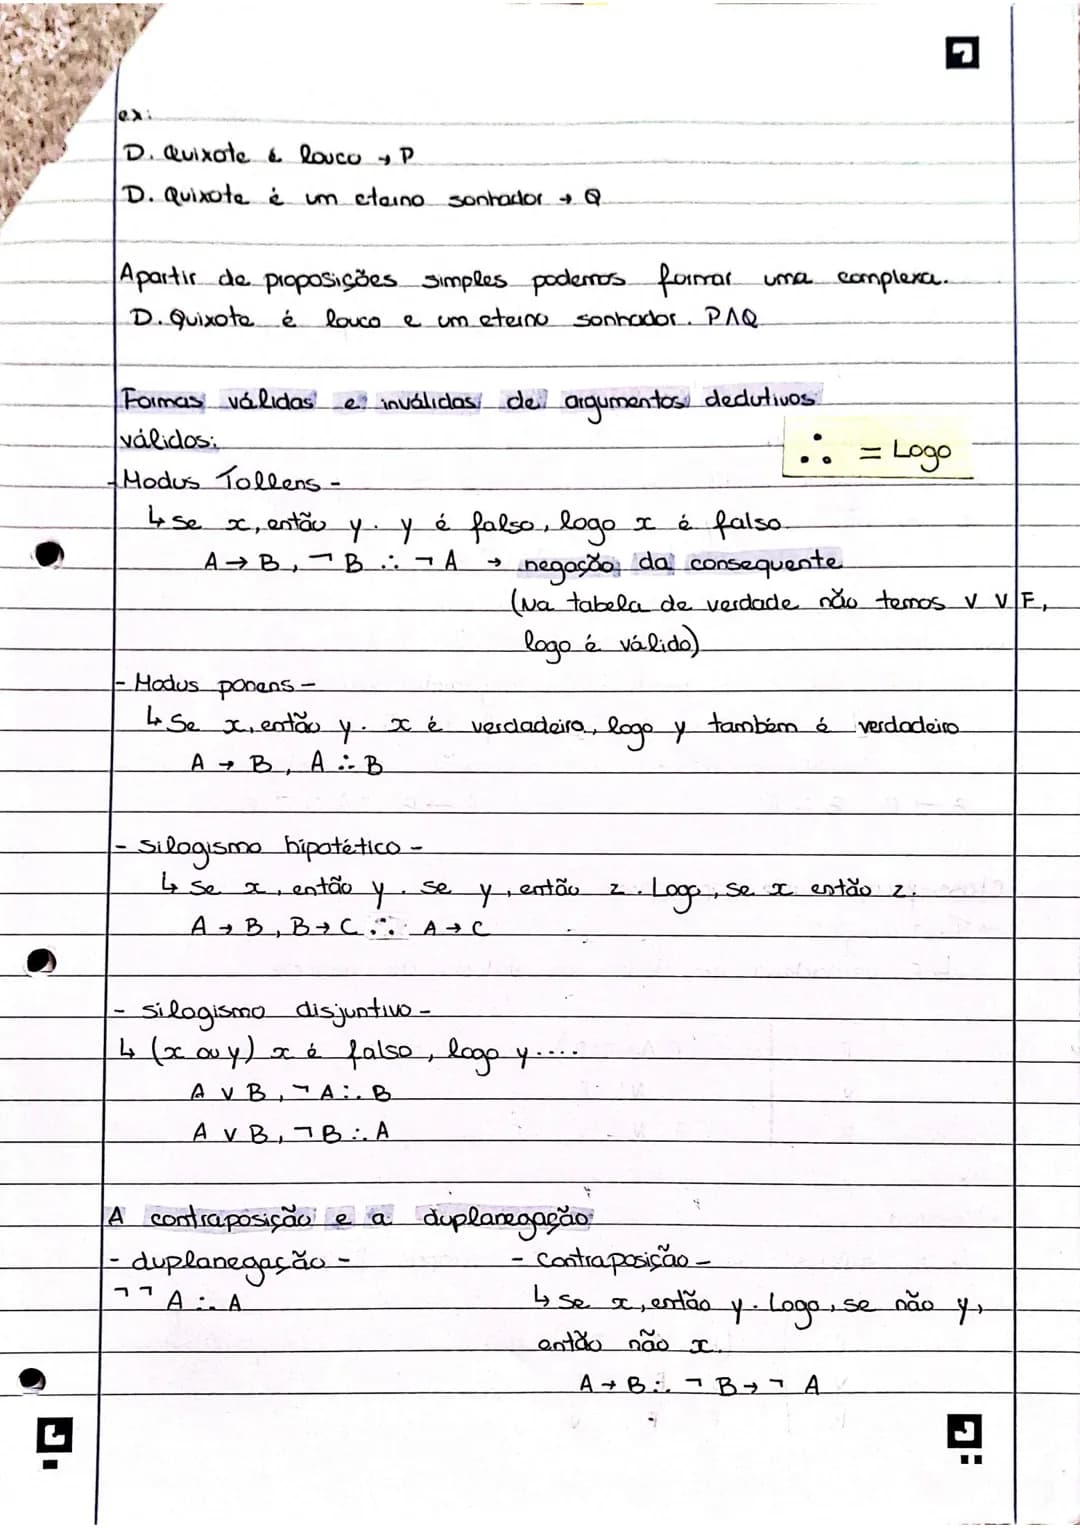 ex:
D. Quixote é louco → P
D. Quixote é um eterno sonhador → Q
Apartir de proposições simples podemos formar uma complexa.
D. Quixote é louco e um eterno sonhador. P∧Q
Formas válidas e inválidas de argumentos dedutivos
válidos:
∴ = Logo
- Modus Tollens -
↳ se x, então y. y é falso, logo x é falso.
A → B, ¬ B ∴ ¬ A → negação da consequente
(Na tabela de verdade não temos V V F,
logo é válido)
- Modus ponens -
↳ Se x, então y. x é verdadeiro, logo y também é verdadeiro
A → B, A ∴ B
- silogismo hipotético -
↳ se x, então y. se y, então z. Logo, se x então z.
A → B, B → C ∴ A → C
- silogismo disjuntivo -
↳ (x ou y) x é falso, logo y....
A ∨ B, ¬ A ∴ B
A ∨ B, ¬ B ∴ A
A contraposição e a duplanegação
- duplanegação -
¬¬ A ∴ A
- contraposição -
↳ se x, então y. Logo, se não y,
então não x.
A → B ∴ ¬ B → ¬ A